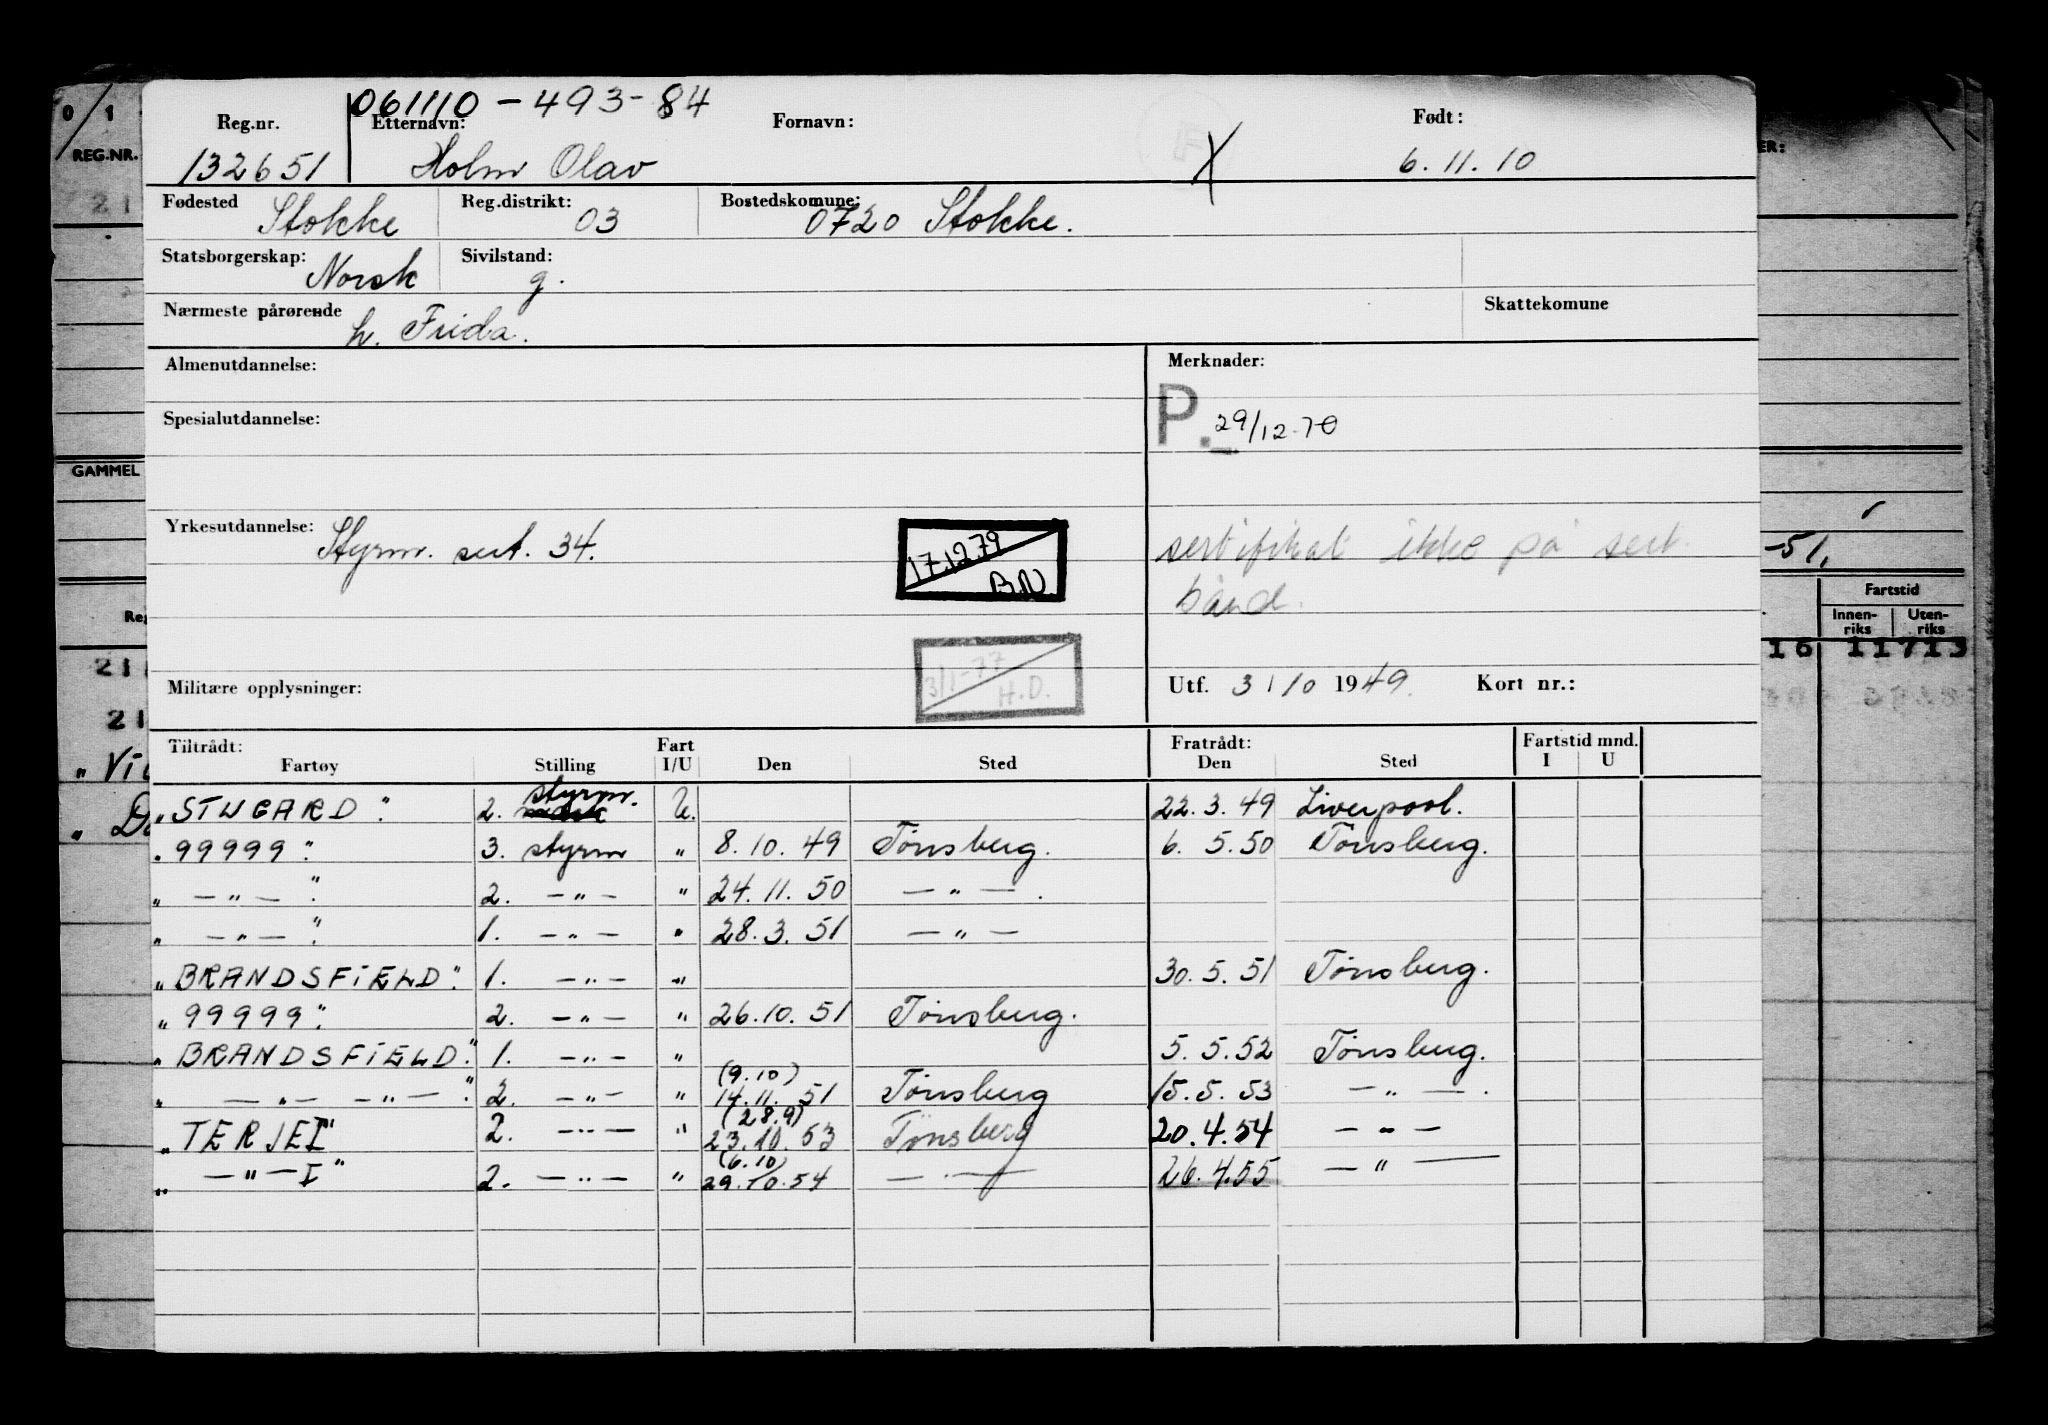 061110-493-84
Reg.nr. Etternavn: Fornavn: Født:
132651 Holm Olav X 6.11.10
Fødested Stokke Reg.distrikt: 03 Bostedskomune: 0720 Stokke.
Statsborgerskap: Norsk Sivilstand: g.
Nærmeste pårørende h. Frida. Skattekomune
Almenutdannelse: Merknader:
Spesialutdannelse: P. 29/12-70
Yrkesutdannelse: Styrm. sert. 34. 17.12.79 B.N. sertifikat ikke på sert.
bånd.
3/1-77 H.D.
Militære opplysninger: Utf. 31/10 1949. Kort nr.:
Tiltrådt: Fart Fratrådt: Fartstid mnd.
Fartøy Stilling I/U Den Sted Den Sted I U
"STUGARD" 2. styrm. U. 22.3.49 Liverpool.
"99999" 3. styrm " 8.10.49 Tønsberg. 6.5.50 Tønsberg.
" —"— " 2. —"— " 24.11.50 —"—.
" —"— " 1. —"— " 28.3.51 —"—
"BRANDSFIELD" 1. —"— " 30.5.51 Tønsberg.
"99999" 2. —"— " 26.10.51 Tønsberg.
"BRANDSFIELD" 1. —"— " 5.5.52 Tønsberg.
(9.10)
" —"— —"— " 2. —"— " 14.11.51 Tønsberg 15.5.53 —"—.
(28.9)
"TERJE I" 2. —"— " 23.10.53 Tønsberg 20.4.54 —"—
(6.10)
" —"— I" 2. —"— " 29.10.54 —"— 26.4.55 —"—
0/1
REG.NR.
21
GAMMEL
Reg
21
21
"Vi
"D
ER:
-51,
Fartstid
Innen-
riks
Uten-
riks
16 11713